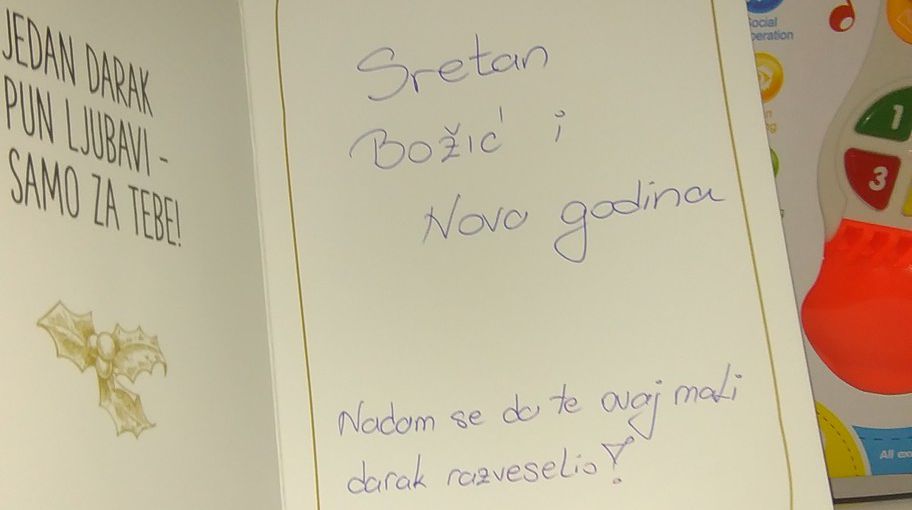 JEDAN DARAK
PUN LJUBAVI -
SAMO ZA TEBE!
Sretan
Božić i
Nova godina
Nadam se da te ovaj mali
darak razveselio!
ocial
peration
1
3
All